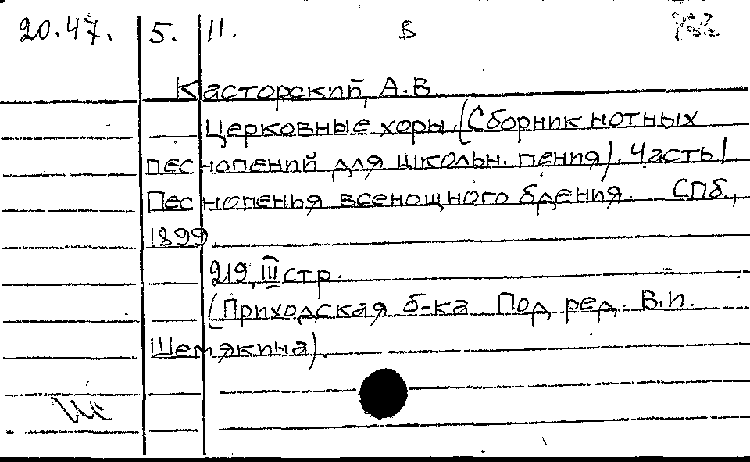 20.47. 5. 11. В
Касторский, А.В.
Церковные хоры (Сборник нотных
песнопений для школьн. пения). Часть I
Песнопенья всенощного бдения. СПб.,
1899
219, III стр.
(Приходская б-ка Под ред. В.И.
Шемякина).